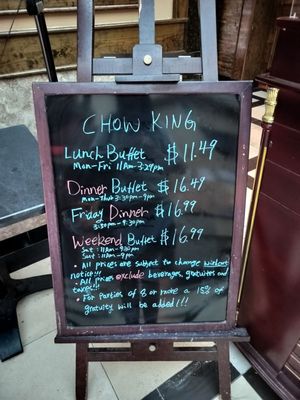 CHOW KING
Lunch Buffet $11.49
Mon-Fri 11AM-3:29PM
Dinner Buffet $16.49
Mon-Thu 3:30PM-9PM
Friday Dinner $16.99
3:30PM-9:30PM
Weekend Buffet $16.99
Sat: 11AM-9:30PM
Sun: 11AM-9PM
• All prices are subject to change without
notice!!!
• All prices exclude beverages, gratuities and
taxes!!!
• For parties of 8 or more a 15%
gratuity will be added!!!